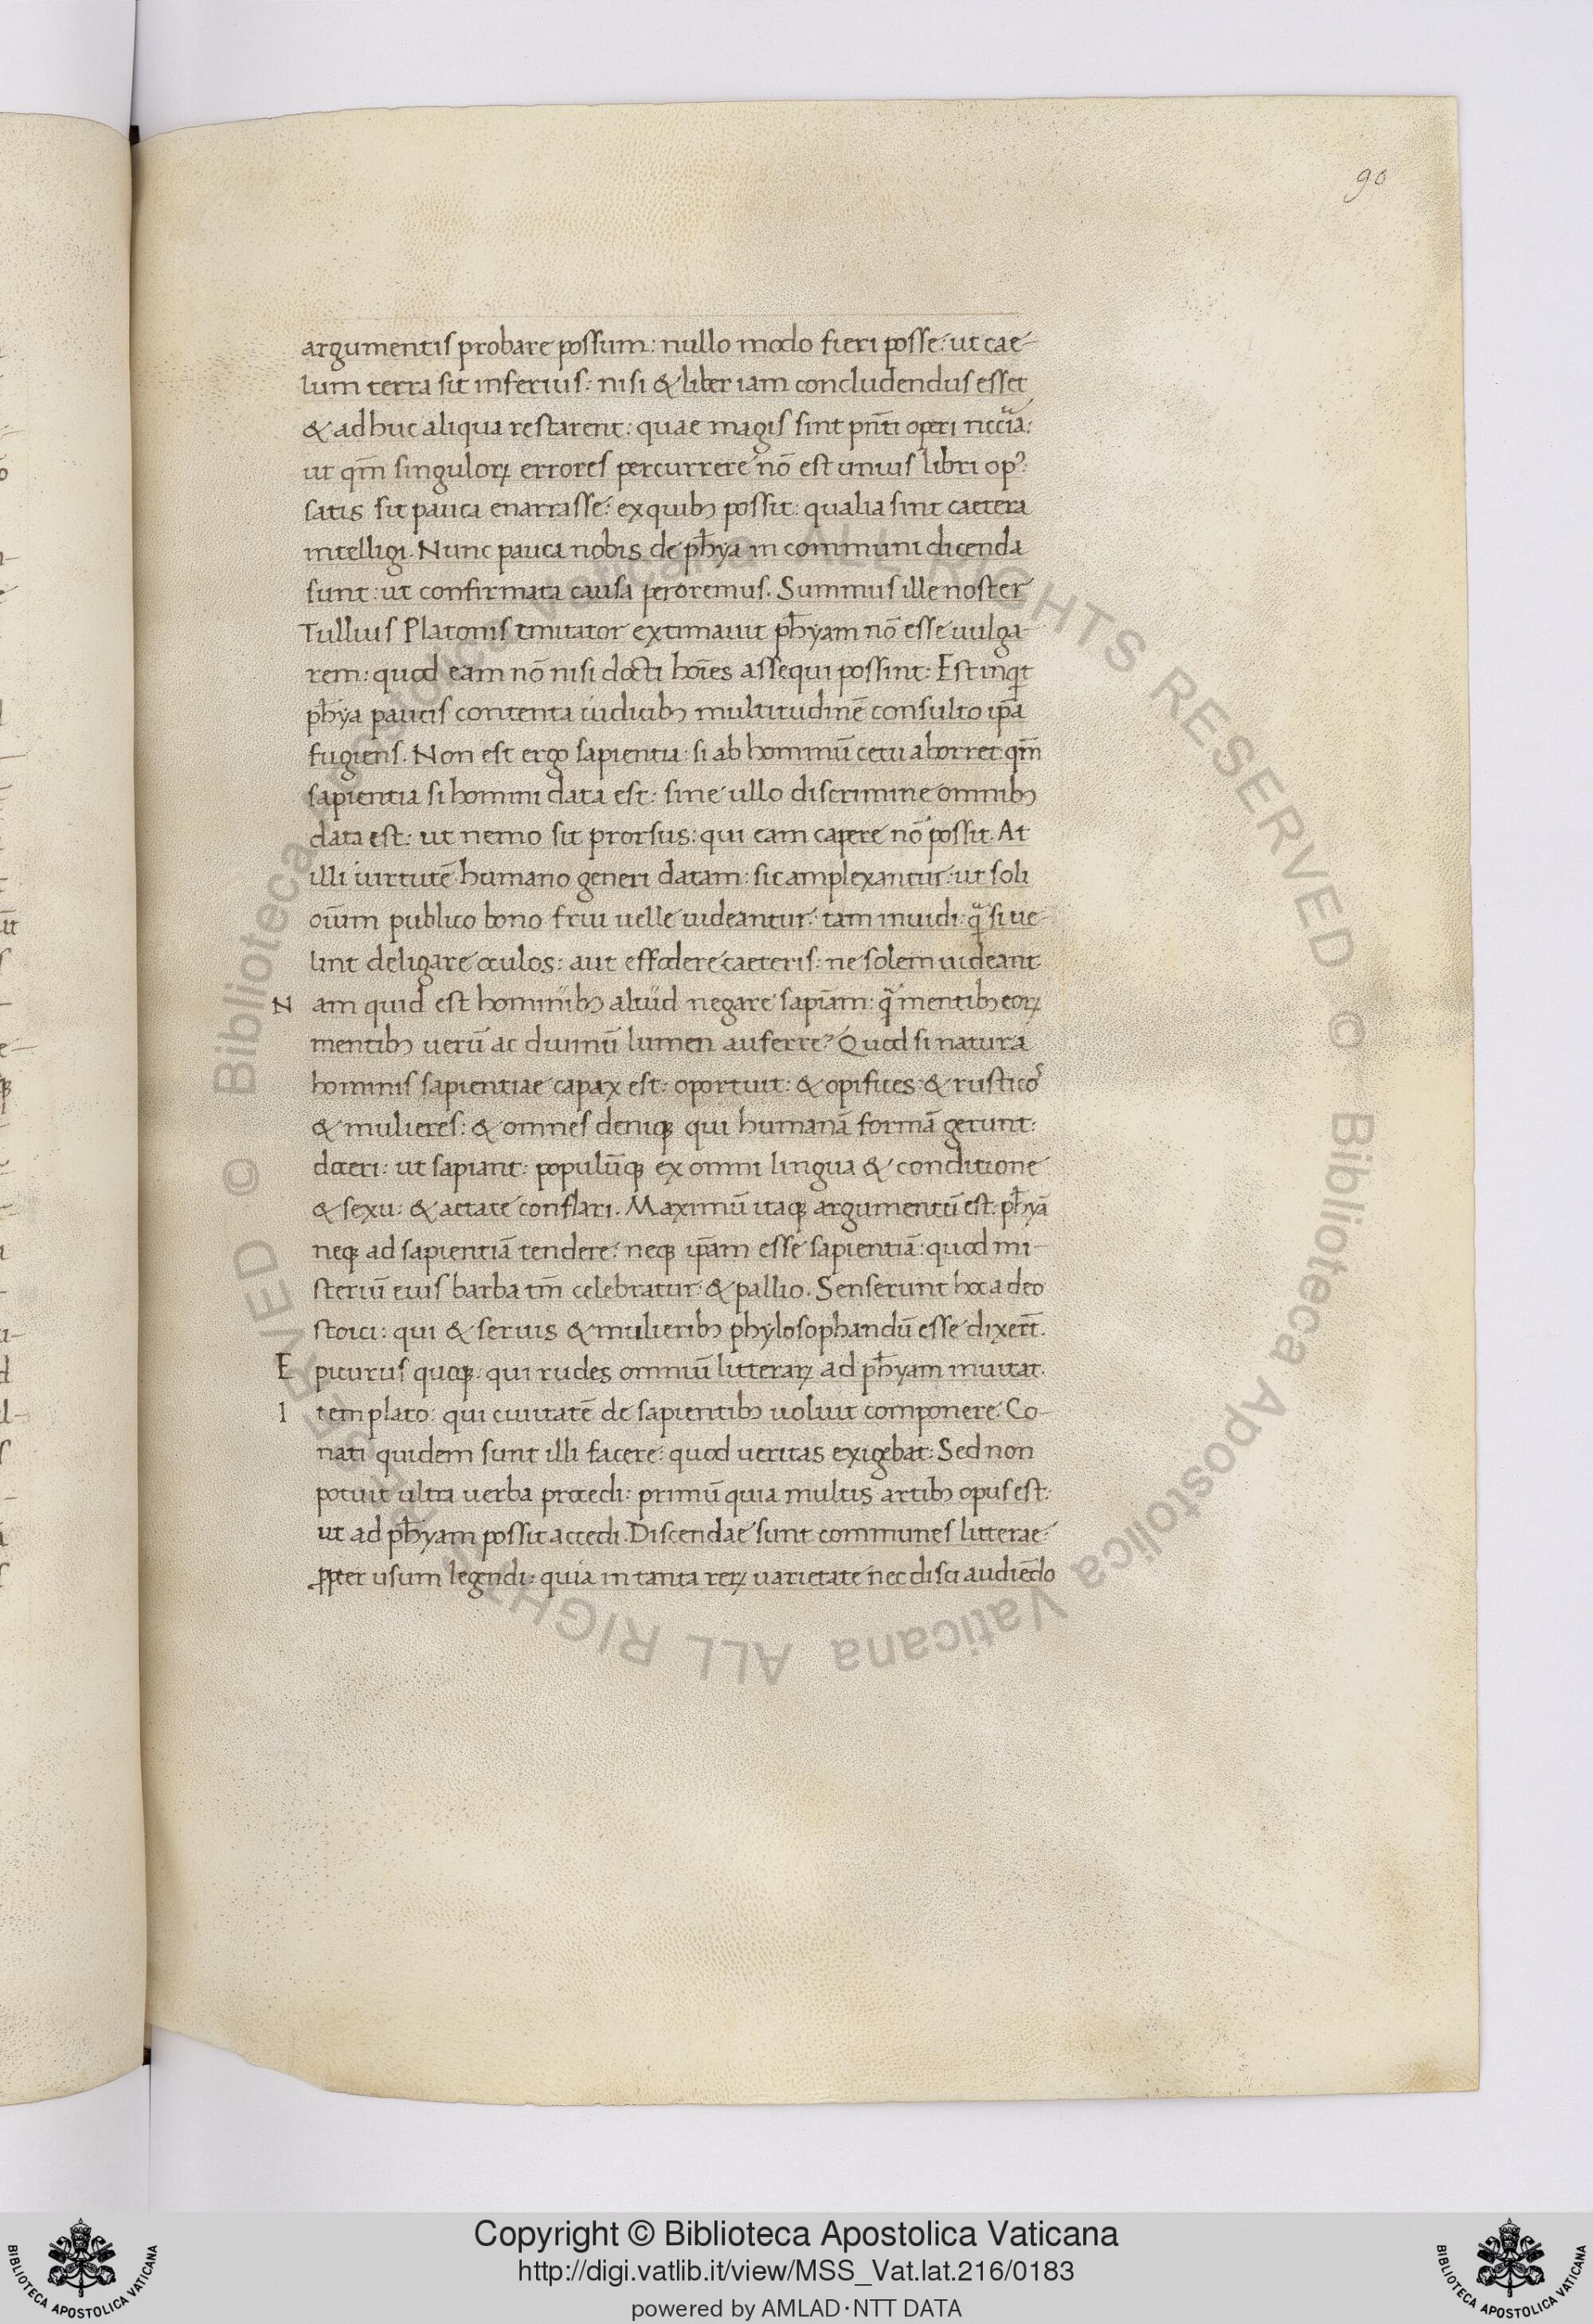 90
argumentis probare possum: nullo modo fieri posse: ut cae-
lum terra sit inferius: nisi & liber iam concludendus esset
& adhuc aliqua restarent: quae magis sint pñti operi nccͣia:
ut qm̄ singuloꝝ errores percurrere nō est unius libri opꝰ:
satis sit pauca enarrasse: ex quibꝫ possit: qualia sint caetera
intelligi. Nunc pauca nobis de ph̄ya in communi dicenda
sunt: ut confirmata causa peroremus. Summus ille noster
Tullius Platonis imitator extimauit ph̄yam nō esse uulga-
rem: quod eam nō nisi docti hoīes assequi possint: Est inqͥt
ph̄ya paucis contenta iudicibꝫ multitudinē consulto ip̄a
fugiens. Non est ergo sapientia: si ab hominū cetu aborret: qm̄
sapientia si homini data est: sine ullo discrimine omnibꝫ
data est: ut nemo sit prorsus: qui eam capere nō possit. At
illi uirtutē humano generi datam: sic amplexantur: ut soli
oīum publico bono frui uelle uideantur: tam inuidi: qͣsi ue-
lint deligare oculos: aut effodere caeteris: ne solem uideant
Nam quid est hominibꝫ aliud negare sapīam: qͣ mentibꝫ eoꝝ
mentibꝫ uerū ac diuinū lumen auferre? Quod si natura
hominis sapientiae capax est: oportuit: & opifices & rusticoˢ
& mulieres: & omnes deniqꝫ qui humanā formā gerunt:
doceri: ut sapiant: populūqꝫ ex omni lingua & conditione
& sexu: & aetate conflari. Maximū itaqꝫ argumentū est: ph̄yā
neqꝫ ad sapientiā tendere: neqꝫ ip̄am esse sapientiā: quod mi-
steriū eius barba tm̄ celebratur: & pallio. Senserunt hoc adeo
stoici: qui & seruis & mulieribꝫ phylosophandū esse dixerūt.
Epicurus quoqꝫ: qui rudes omniū litteraꝝ ad ph̄yam inuitat.
Item plato: qui ciuitatē de sapientibꝫ uoluit componere. Co-
nati quidem sunt illi facere: quod ueritas exigebat: Sed non
potuit ultra uerba procedi: primū quia multis artibꝫ opus est:
ut ad ph̄yam possit accedi. Discendae sunt communes litterae:
ꝓpter usum legendi: quia in tanta reꝝ uarietate nec disci audiēdo
Copyright © Biblioteca Apostolica Vaticana
http://digi.vatlib.it/view/MSS_Vat.lat.216/0183
powered by AMLAD·NTT DATA
BIBLIOTECA APOSTOLICA VATICANA
BIBLIOTECA APOSTOLICA VATICANA
© Biblioteca Apostolica Vaticana ALL RIGHTS RESERVED © Biblioteca Apostolica Vaticana ALL RIGHTS RESERVED